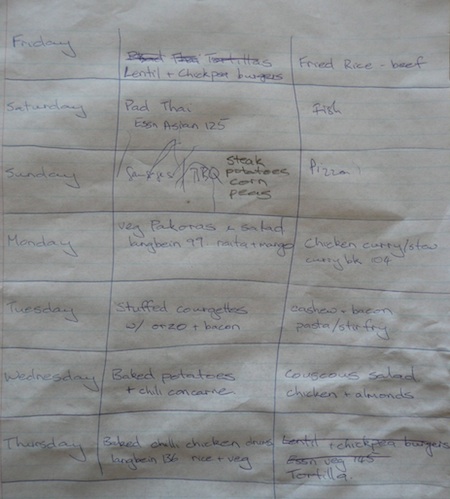 Friday
Tortillas
Lentil + Chickpea burgers
Fried Rice - beef
Saturday
Pad Thai
Essn Asian 125
Fish
Sunday
BBQ
steak
potatoes
corn
peas
Pizza
Monday
veg Pakoras + salad
langbein 97 raita + mango
Chicken curry/stew
curry bk 104
Tuesday
Stuffed courgettes
w/ orzo + bacon
cashew + bacon
pasta/stirfry
Wednesday
Baked potatoes
+ chili concarne
Couscous salad
chicken + almonds
Thursday
Baked chilli chicken drums
langbein 136 rice + veg
Lentil + chickpea burgers
Essn veg 145
Tortilla.